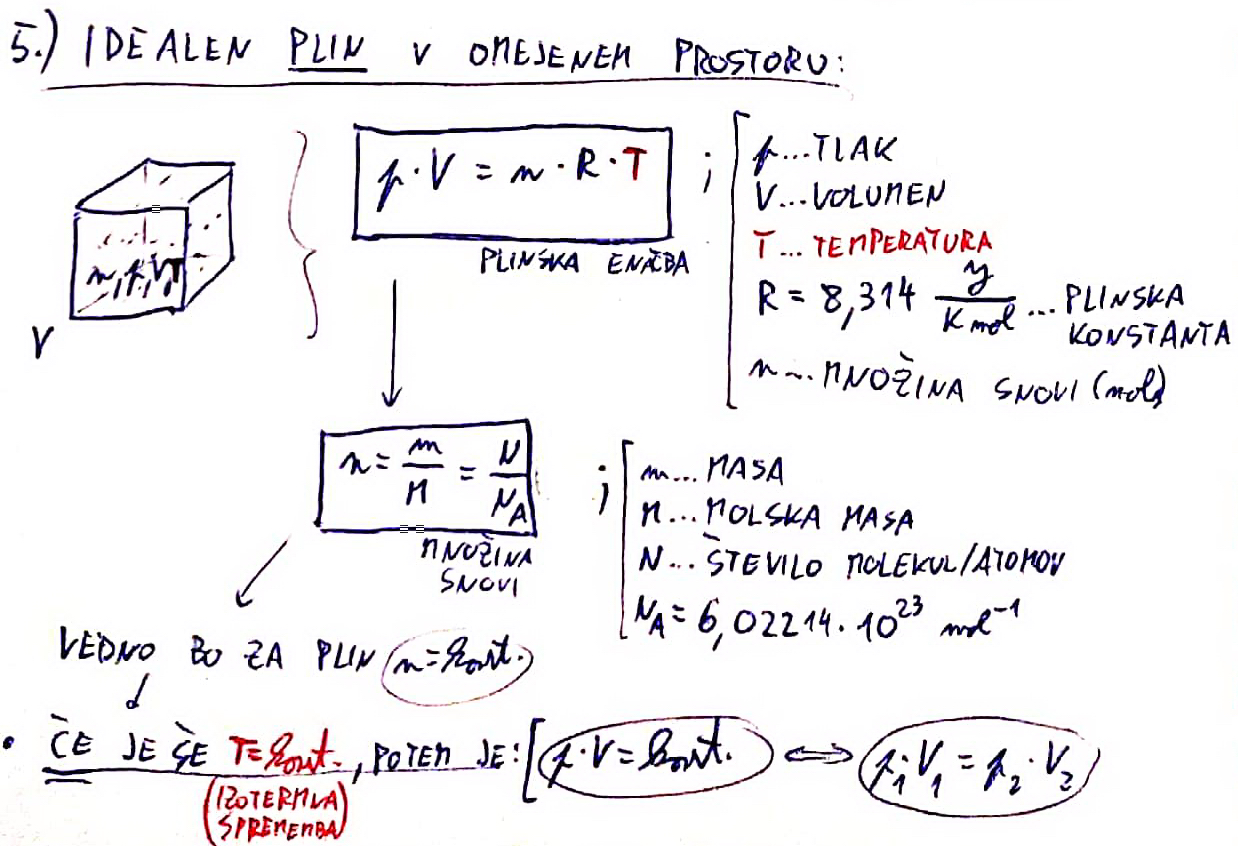 5.) IDEALEN PLIN V OMEJENEM PROSTORU:
p · V = n · R · T ;
PLINSKA ENAČBA
p... TLAK
V... VOLUMEN
T... TEMPERATURA
R = 8,314 J/K mol ... PLINSKA
KONSTANTA
n... MNOŽINA SNOVI (mol)
n, p, V, T
V
n = m/M = N/N_A ;
MNOŽINA
SNOVI
m... MASA
M... MOLSKA MASA
N... ŠTEVILO MOLEKUL/ATOMOV
N_A = 6,02214 · 10^23 mol^-1
VEDNO BO ZA PLIN n = konst.
• ČE JE ŠE T = konst., POTEM JE: [ p · V = konst. ⟺ p₁ · V₁ = p₂ · V₂
(IZOTERMNA
SPREMEMBA)